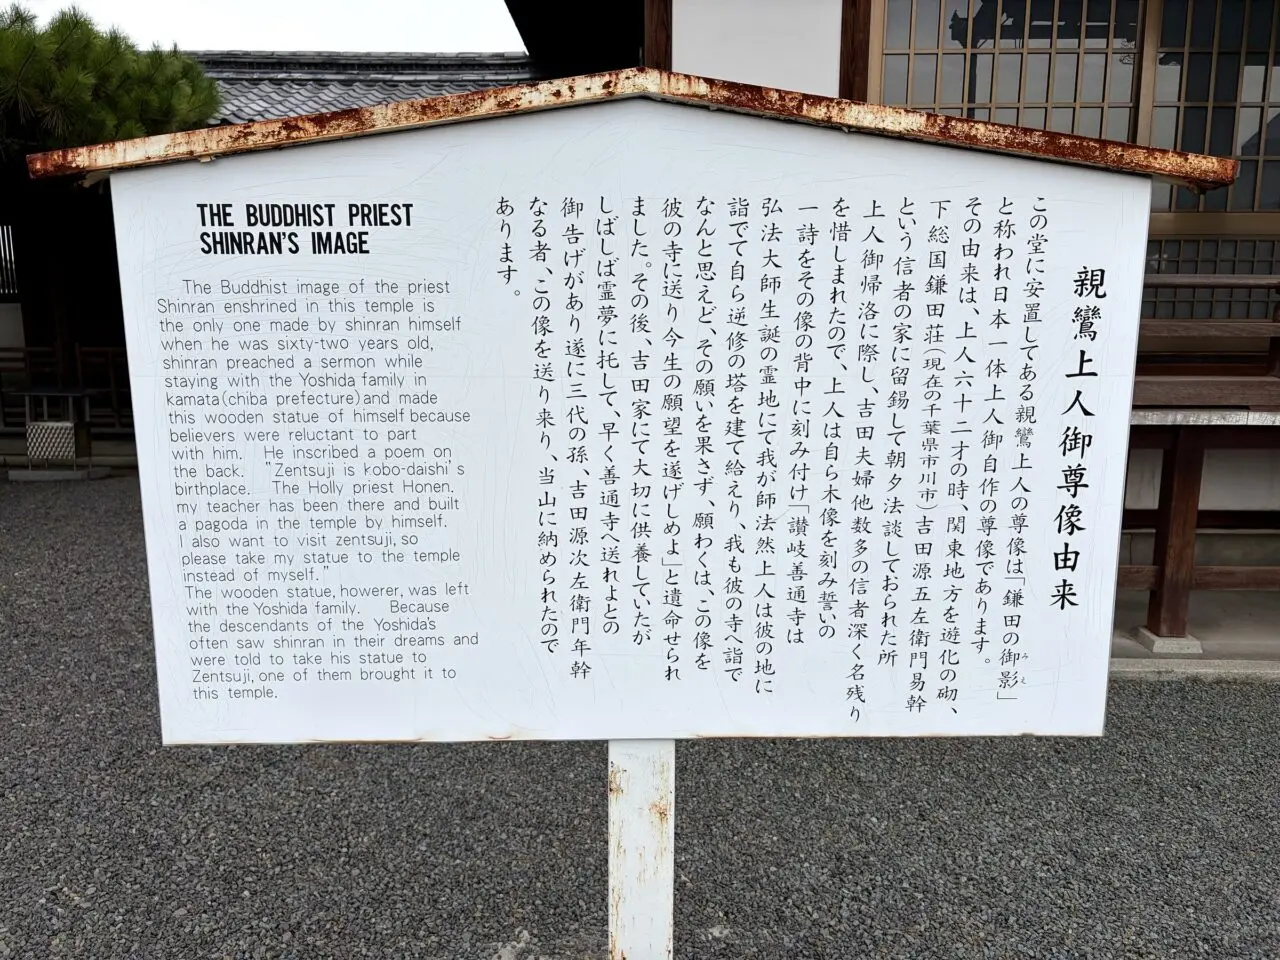 THE BUDDHIST PRIEST
SHINRAN'S IMAGE
The Buddhist image of the priest
Shinran enshrined in this temple is
the only one made by shinran himself
when he was sixty-two years old,
shinran preached a sermon while
staying with the Yoshida family in
kamata(chiba prefecture)and made
this wooden statue of himself because
believers were reluctant to part
with him. He inscribed a poem on
the back. "Zentsuji is kobo-daishi's
birthplace. The Holly priest Honen.
my teacher has been there and built
a pagoda in the temple by himself.
I also want to visit zentsuji,so
please take my statue to the temple
instead of myself."
The wooden statue, howerer, was left
with the Yoshida family. Because
the descendants of the Yoshida's
often saw shinran in their dreams and
were told to take his statue to
Zentsuji,one of them brought it to
this temple.
親鸞上人御尊像由来
この堂に安置してある親鸞上人の尊像は「鎌田の御影(みえ)」
と称われ日本一体上人御自作の尊像であります。
その由来は、上人六十二才の時、関東地方を遊化の砌、
下総国鎌田荘(現在の千葉県市川市)吉田源五左衛門易幹
という信者の家に留錫して朝夕法談しておられた所
上人御帰洛に際し、吉田夫婦他数多の信者深く名残り
を惜しまれたので、上人は自ら木像を刻み誓いの
一詩をその像の背中に刻み付け「讃岐善通寺は
弘法大師生誕の霊地にて我が師法然上人は彼の地に
詣でて自ら逆修の塔を建て給えり、我も彼の寺へ詣で
なんと思えど、その願いを果さず、願わくは、この像を
彼の寺に送り今生の願望を遂げしめよ」と遺命せられ
ました。その後、吉田家にて大切に供養していたが
しばしば霊夢に托して、早く善通寺へ送れよとの
御告げがあり遂に三代の孫、吉田源次左衛門年幹
なる者、この像を送り来り、当山に納められたので
あります。